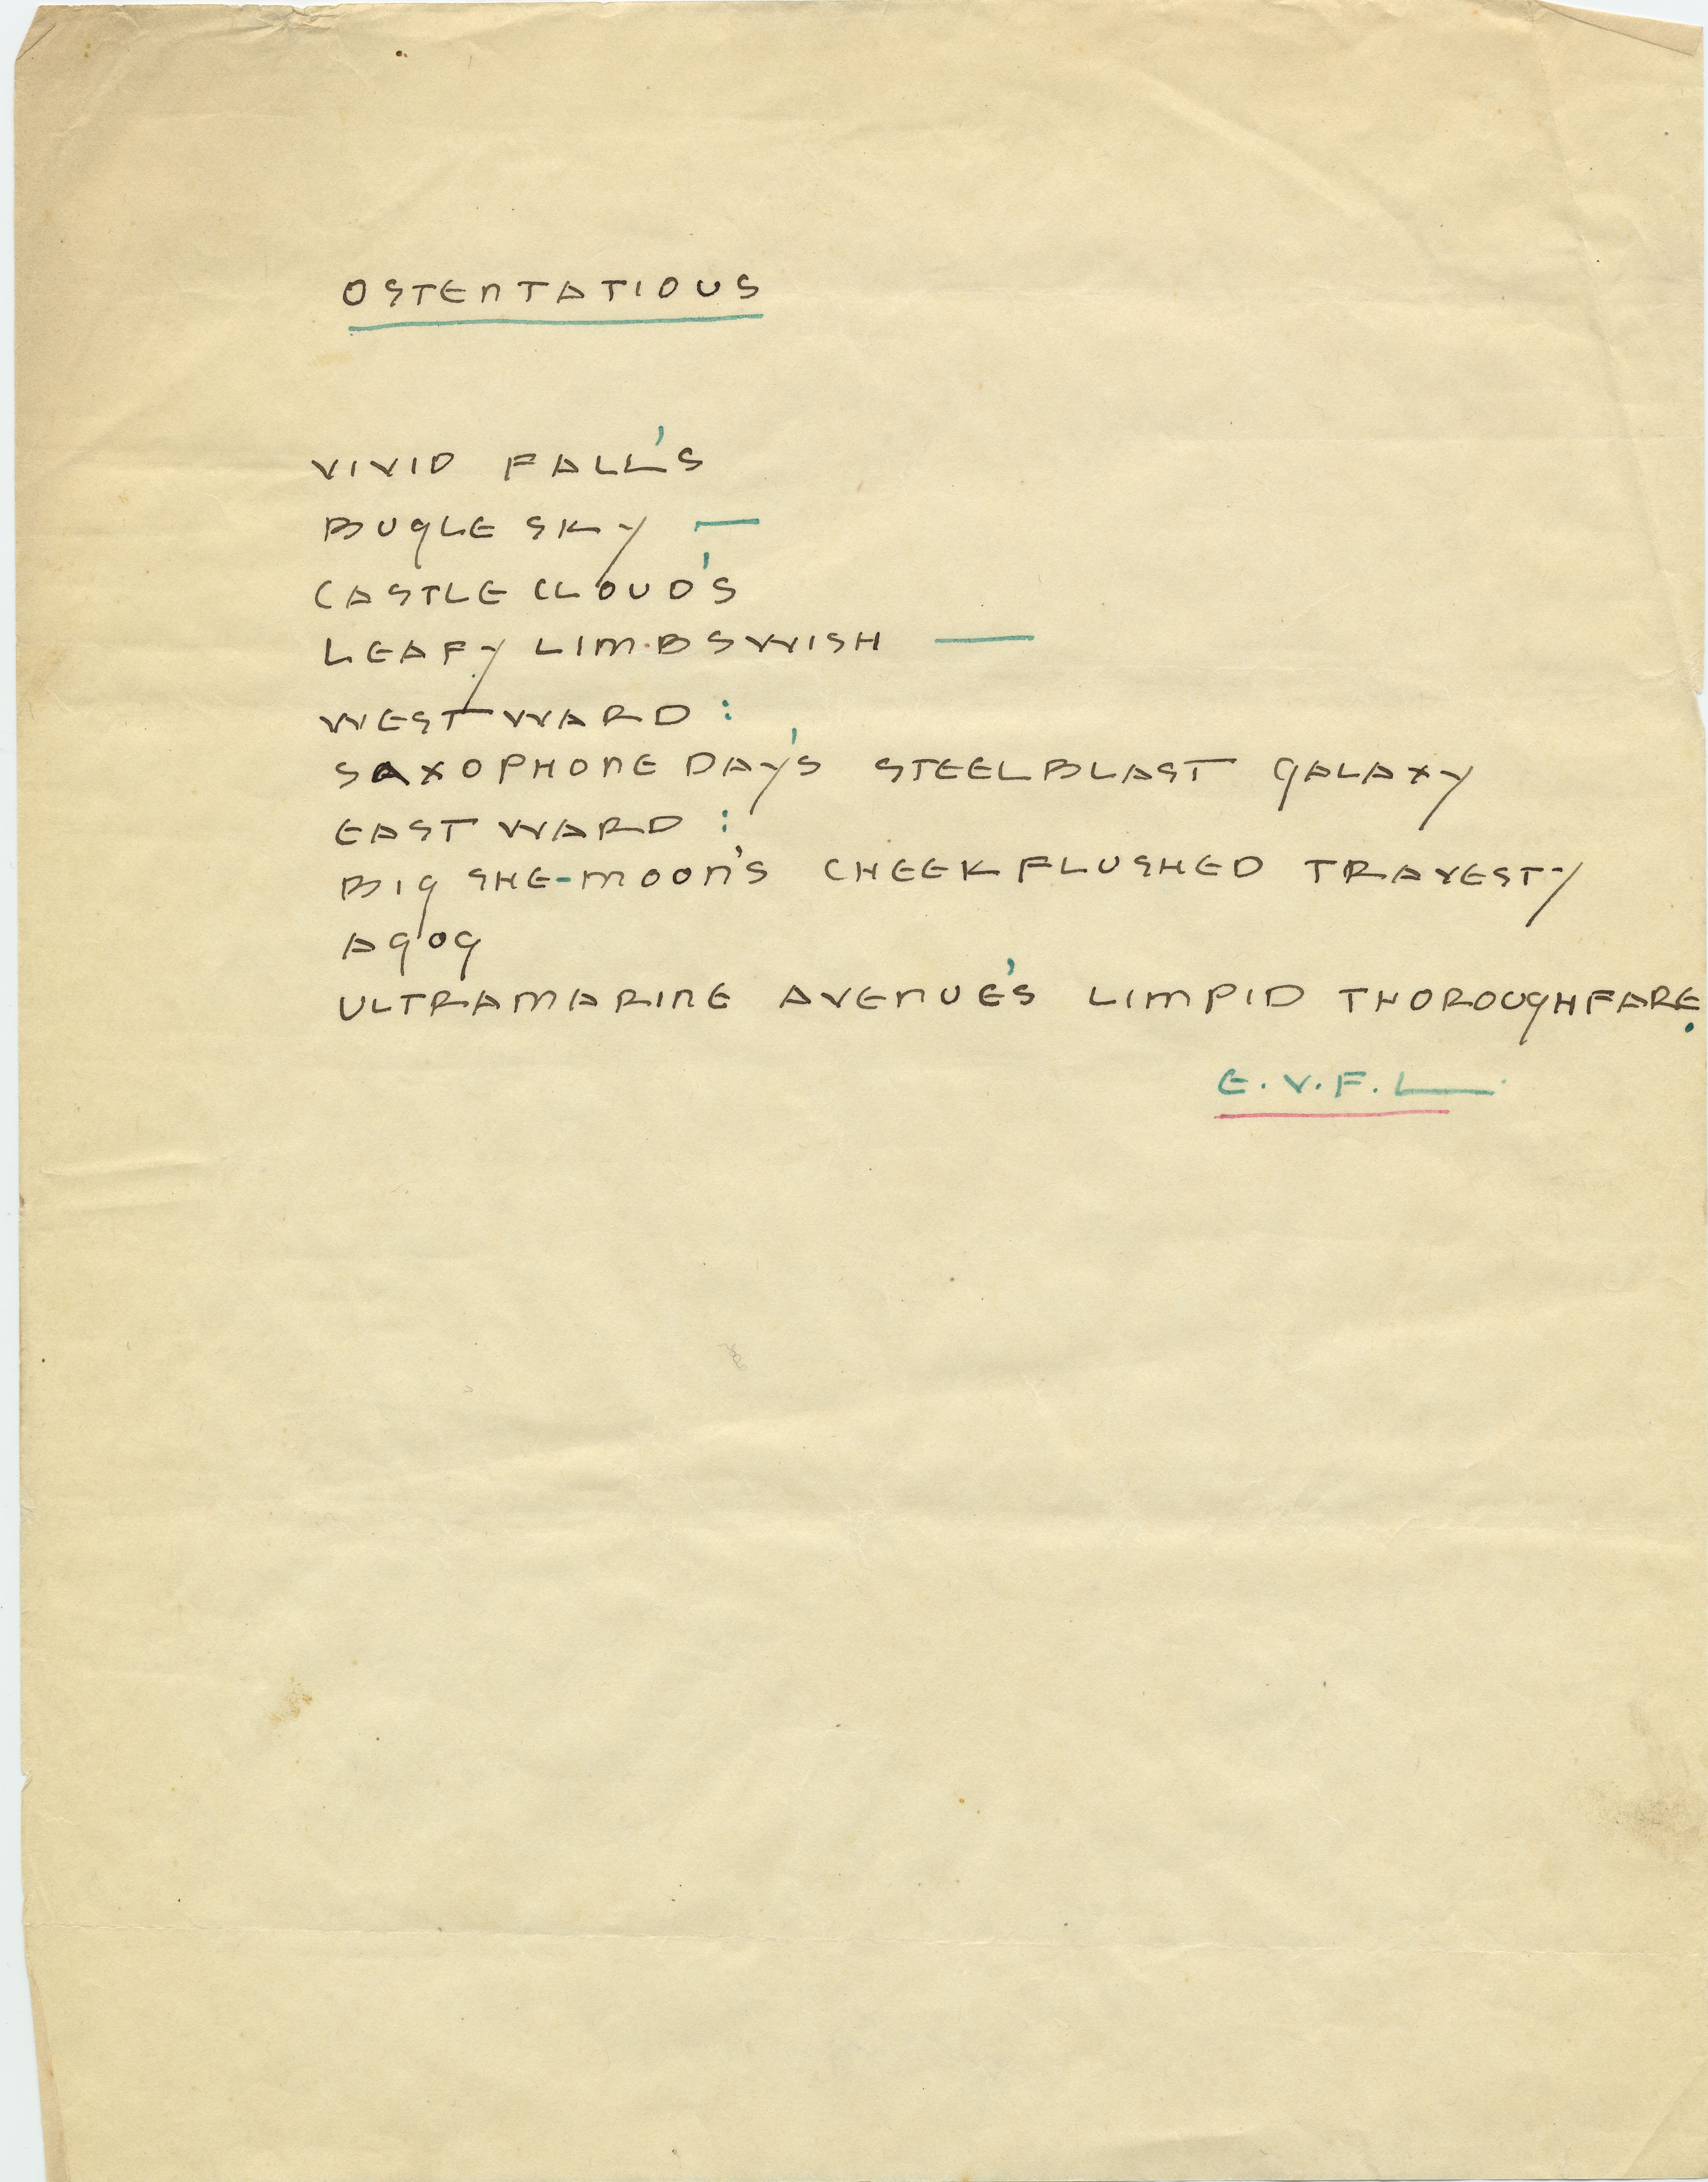 OSTENTATIOUS
VIVID FALL'S
BUGLE SKY —
CASTLE CLOUD'S
LEAFY LIMBSWISH —
WESTWARD :
SAXOPHONE DAY'S STEELBLAST GALAXY
EASTWARD :
BIG SHE-MOON'S CHEEKFLUSHED TRAVESTY
AGOG
ULTRAMARINE AVENUE'S LIMPID THOROUGHFARE.
E.V.F.L—.